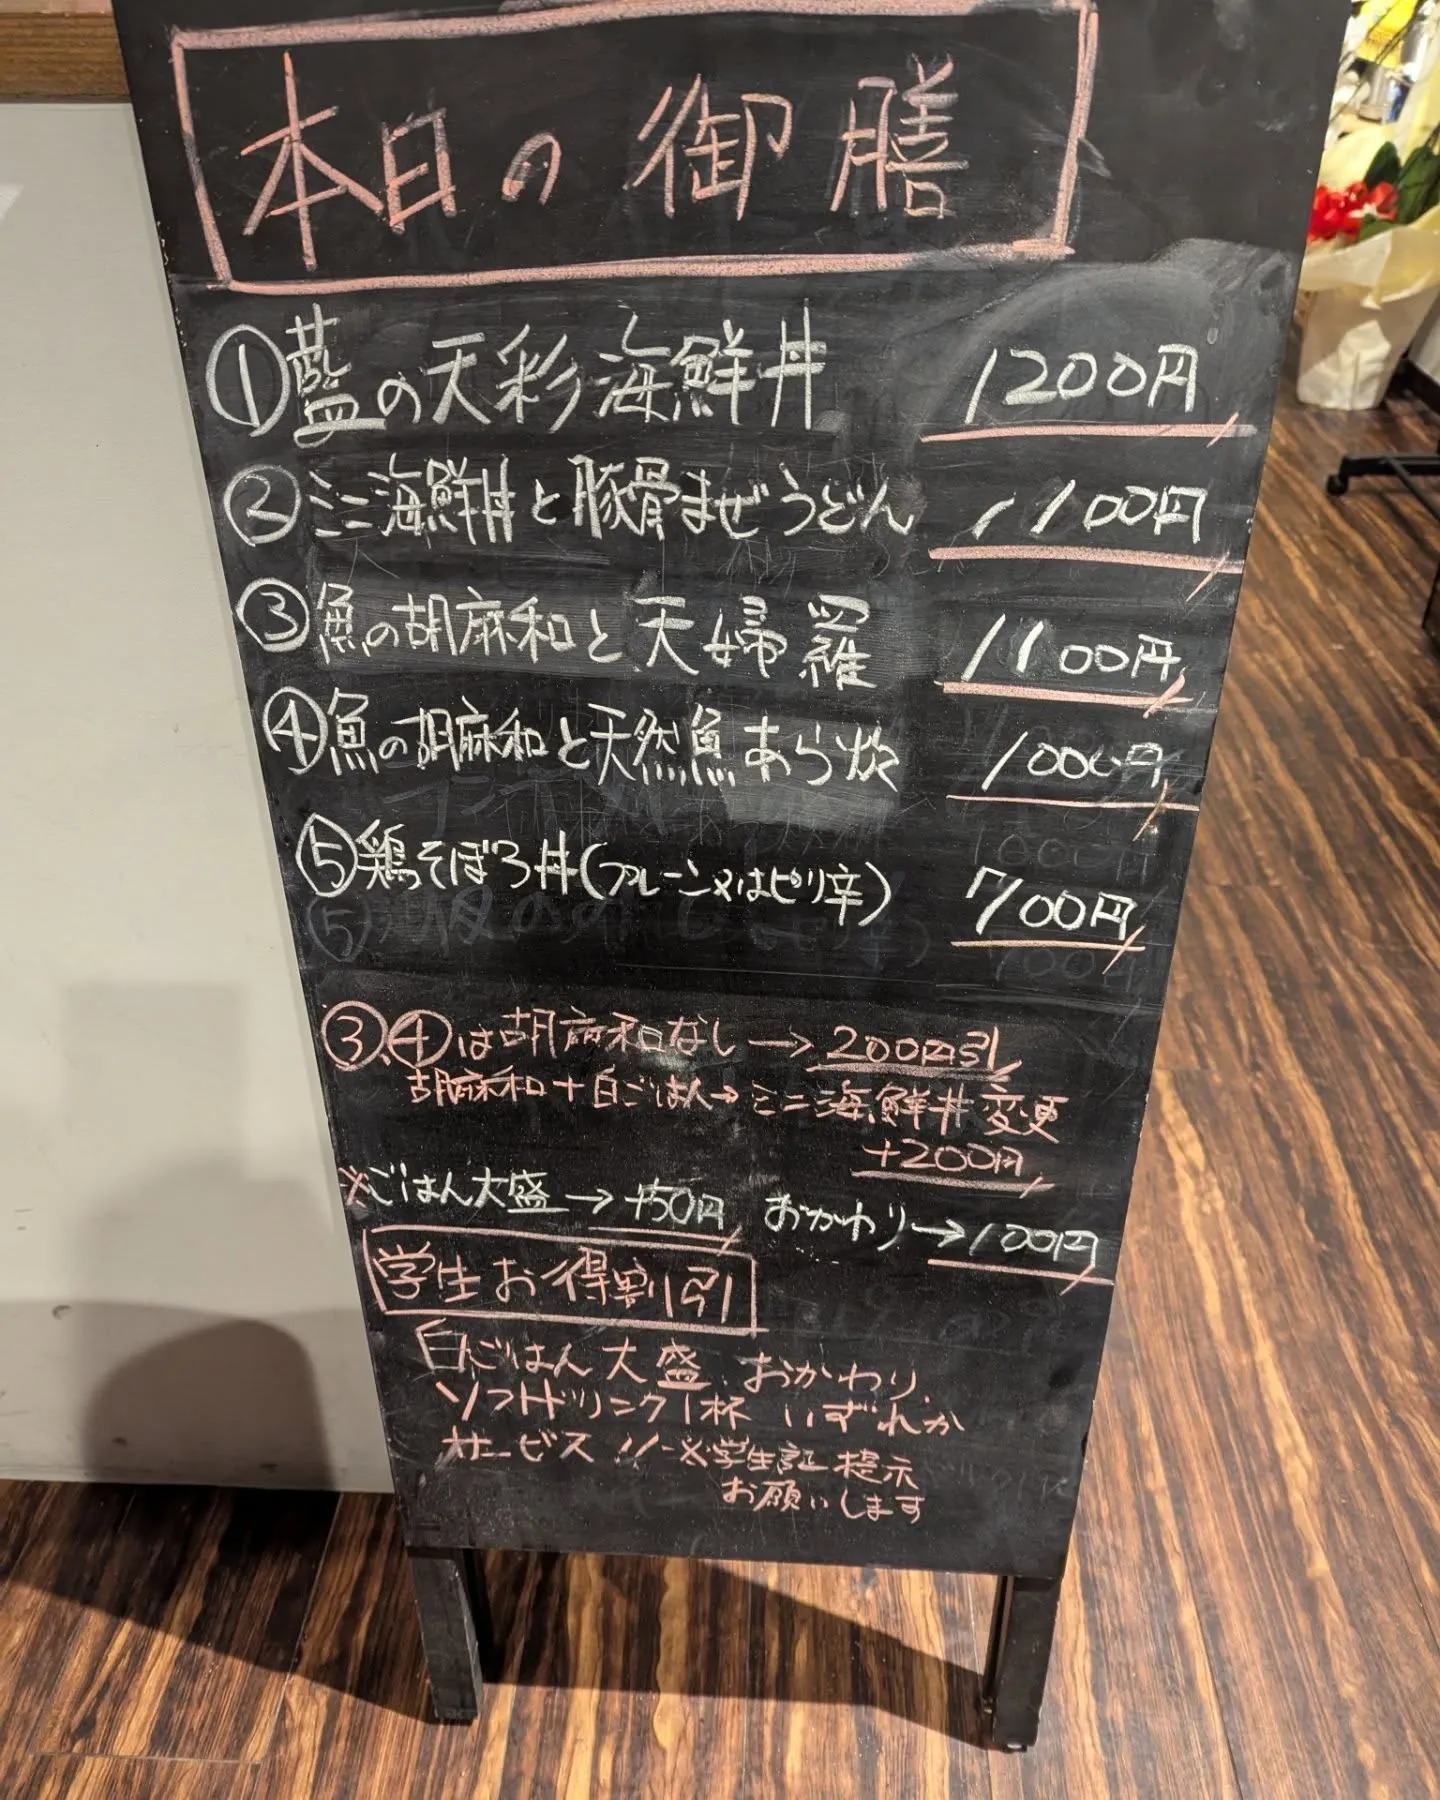 本日の御膳
①藍の天彩海鮮丼 1200円
②ミニ海鮮丼と豚骨まぜうどん 1100円
③魚の胡麻和と天婦羅 1100円
④魚の胡麻和と天然魚あら炊 1000円
⑤鶏そぼろ丼(プレーン又はピリ辛) 700円
③、④は胡麻和なし→200円引
胡麻和+白ごはん→ミニ海鮮丼変更
+200円
※ごはん大盛→+50円 おかわり→100円
学生お得割引
白ごはん大盛、おかわり、
ソフトドリンク1杯 いずれか
サービス!!※学生証提示
お願いします